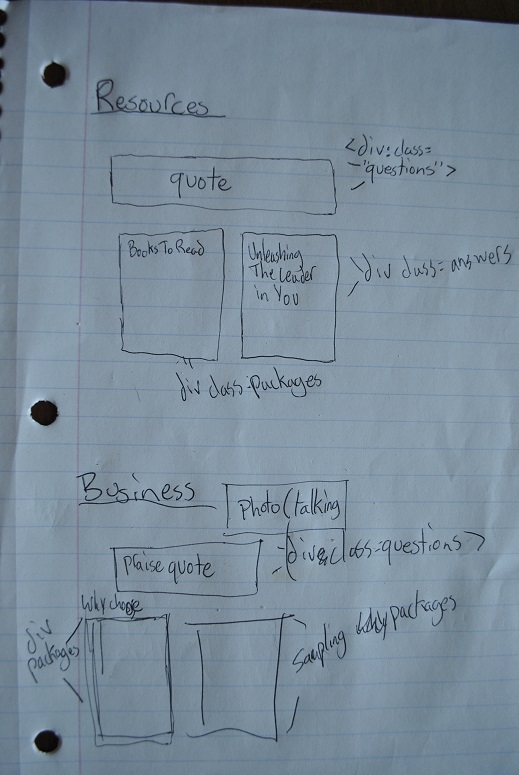 Resources
<div:class=
"questions">
quote
Books To Read
Unleashing
The Leader
in You
div class=answers
div class=packages
Business
photo (talking
div class=questions>
Praise quote
Why choose
div
packages
Sampling packages